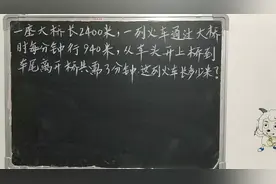 一座大桥长2400米,一列火车通过大桥
时每分钟行940米,从车头开上桥到
车尾离开桥共需3分钟.这列火车长多少米?